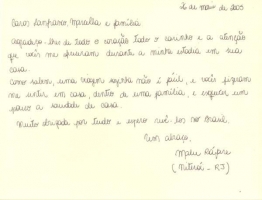 2 de maio de 2003
Caros Sampaio, Marilia e família
Agradeço-lhes de todo o coração todo o carinho e a atenção
que vocês me ofereceram durante a minha estadia em sua
casa.
Como sabem, uma viagem sozinha não é fácil, e vocês fizeram
me sentir em casa, dentro de uma família, e esquecer um
pouco a saudade de casa.
Muito obrigada por tudo e espero vê-los no Brasil.
Um abraço,
(Niterói - RJ)